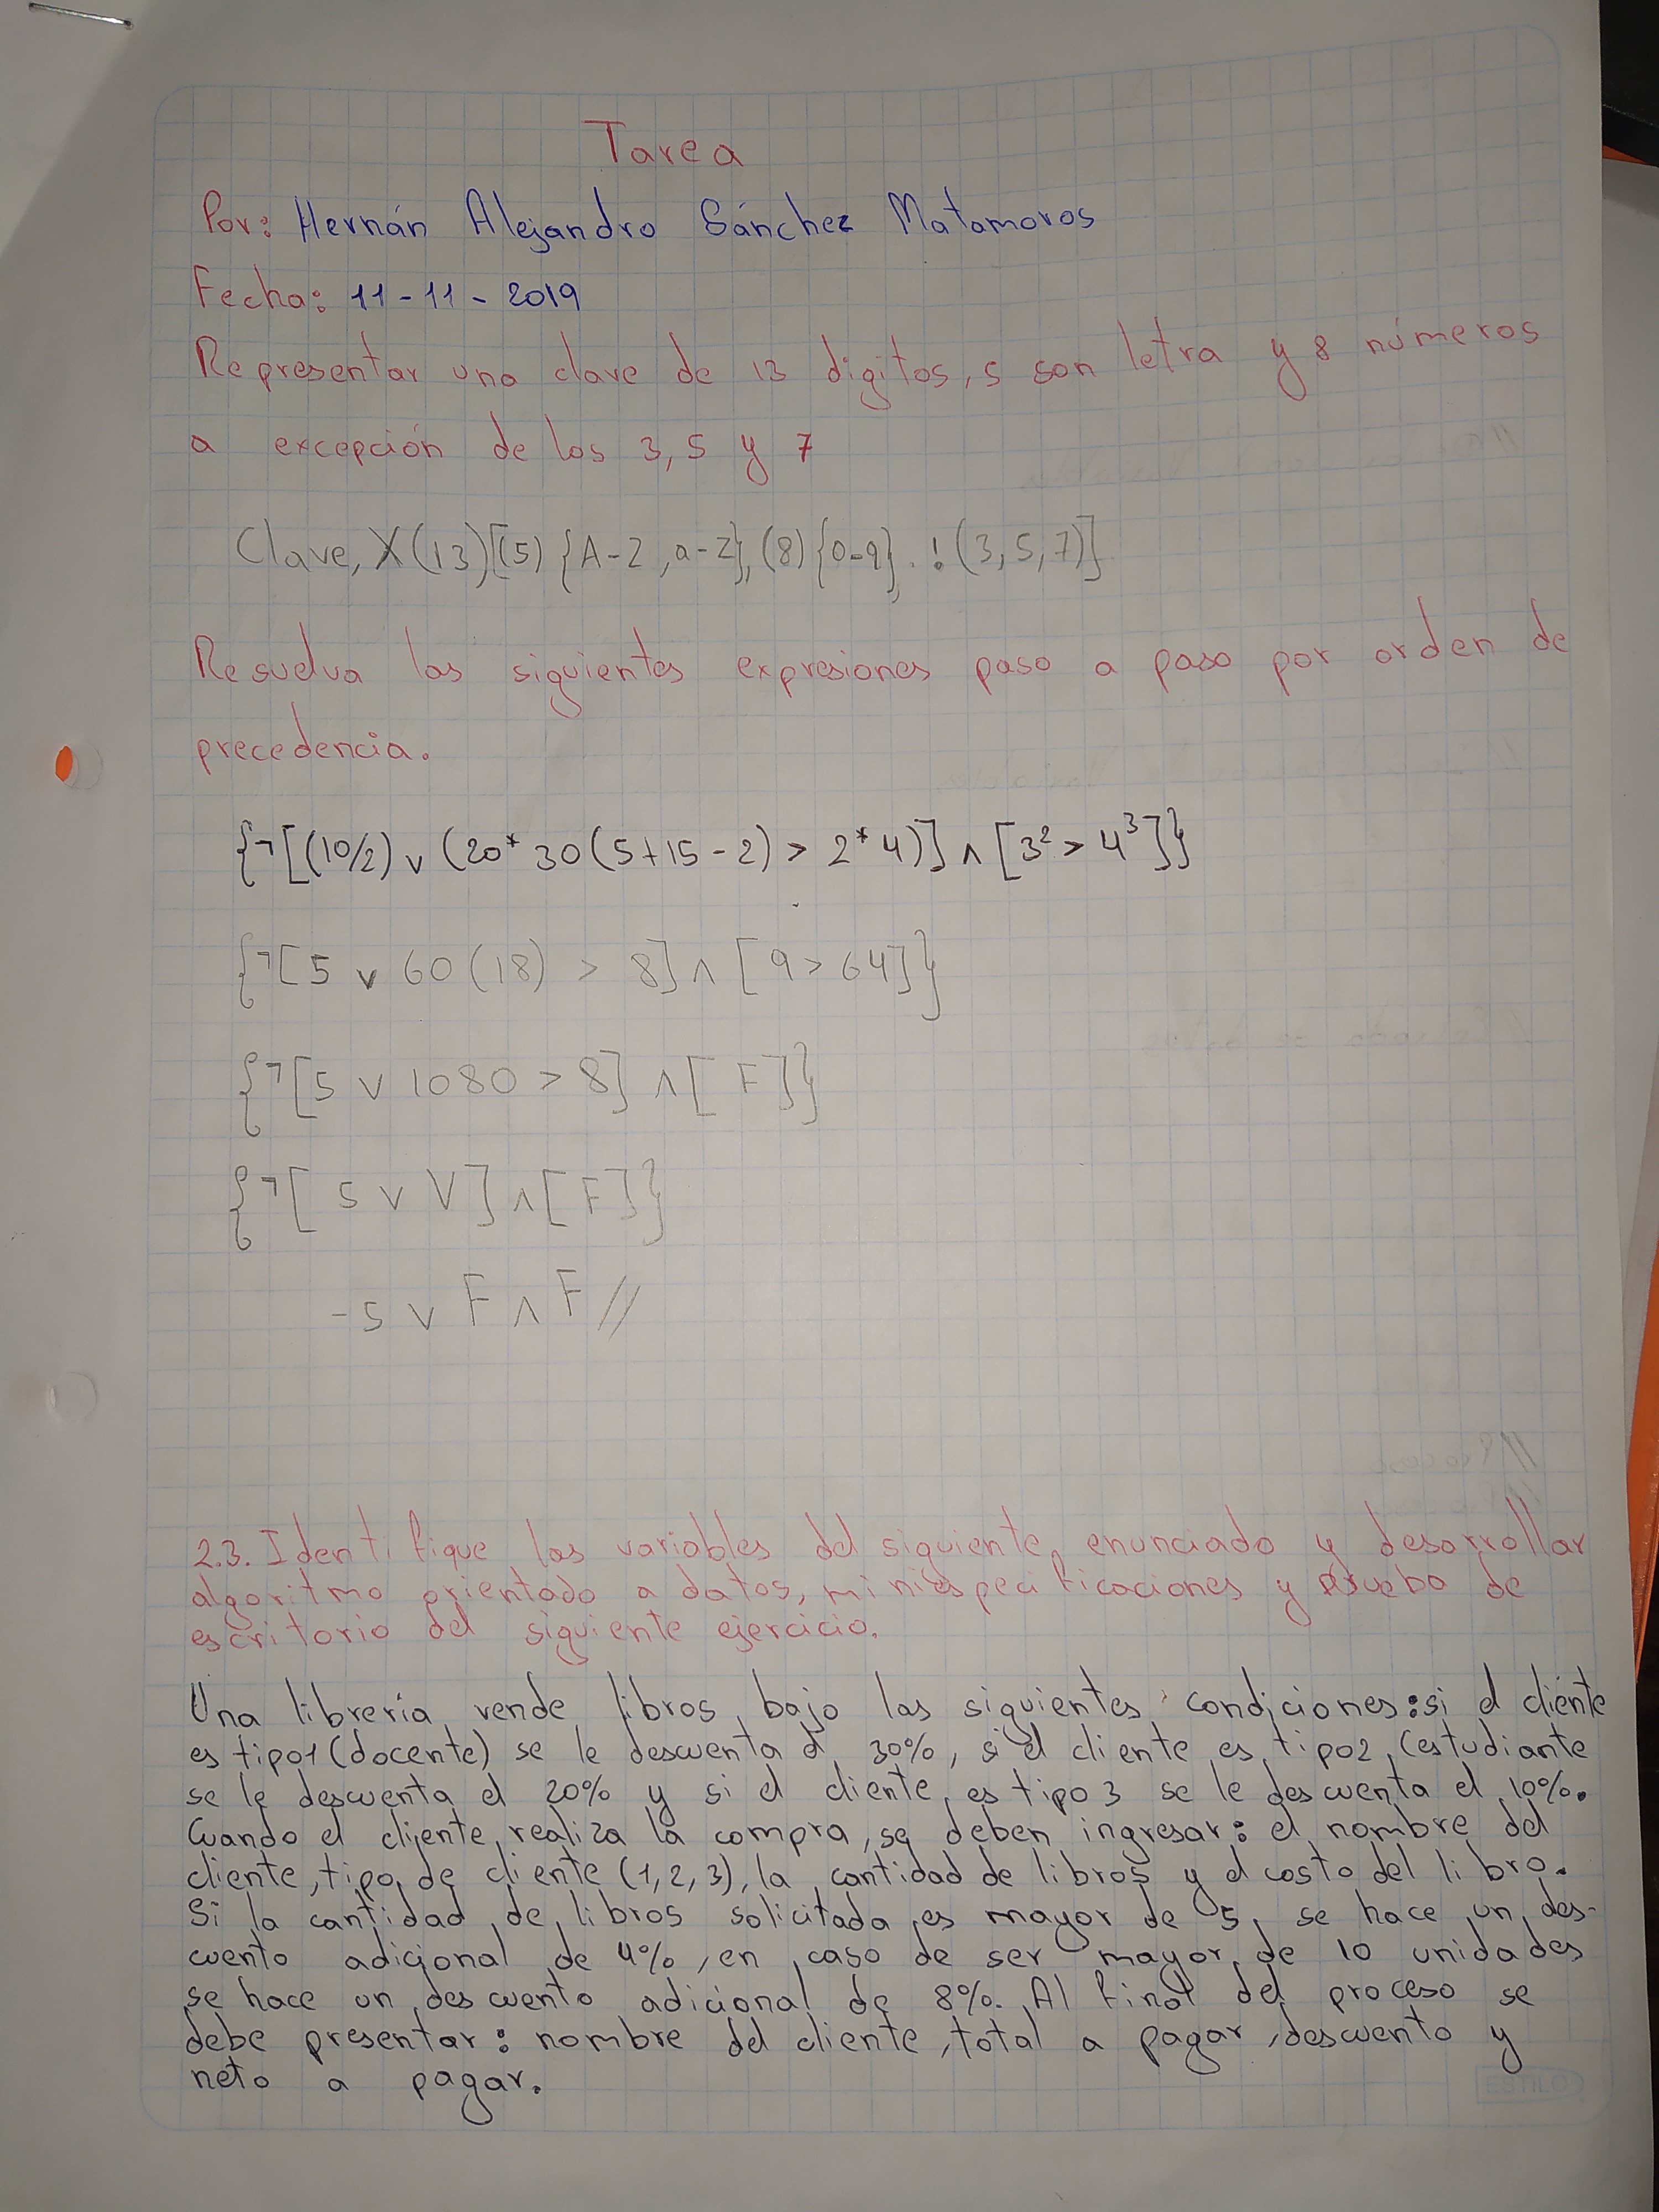 Tarea
Por: Hernán Alejandro Sánchez Matamoros
Fecha: 11-11-2019
Representar una clave de 13 digitos, 5 son letra y 8 números
a excepción de los 3, 5 y 7
Clave, X(13)[(5){A-Z, a-z},(8){0-9}.!(3,5,7)]
Resuelva las siguientes expresiones paso a paso por orden de
precedencia.
{¬[(10/2) ∨ (20* 30(5+15-2) > 2*4)] ∧ [3² > 4³]}
{¬[5 ∨ 60(18) > 8] ∧ [9 > 64]}
{¬[5 ∨ 1080 > 8] ∧ [F]}
{¬[5 ∨ V] ∧ [F]}
-5 ∨ F ∧ F //
2.3. Identifique las variables del siguiente enunciado y desarrollar
algoritmo orientado a datos, miniespecificaciones y prueba de
escritorio del siguiente ejercicio.
Una librería vende libros bajo las siguientes condiciones: si el cliente
es tipo1 (docente) se le descuenta el 30%, si el cliente es tipo2 (estudiante
se le descuenta el 20% y si el cliente es tipo 3 se le descuenta el 10%.
Cuando el cliente realiza la compra, se deben ingresar: el nombre del
cliente, tipo de cliente (1, 2, 3), la cantidad de libros y el costo del libro.
Si la cantidad de libros solicitada es mayor de 5, se hace un des-
cuento adicional de 4%, en caso de ser mayor de 10 unidades
se hace un descuento adicional de 8%. Al final del proceso se
debe presentar: nombre del cliente, total a pagar, descuento y
neto a pagar.
ESTILO